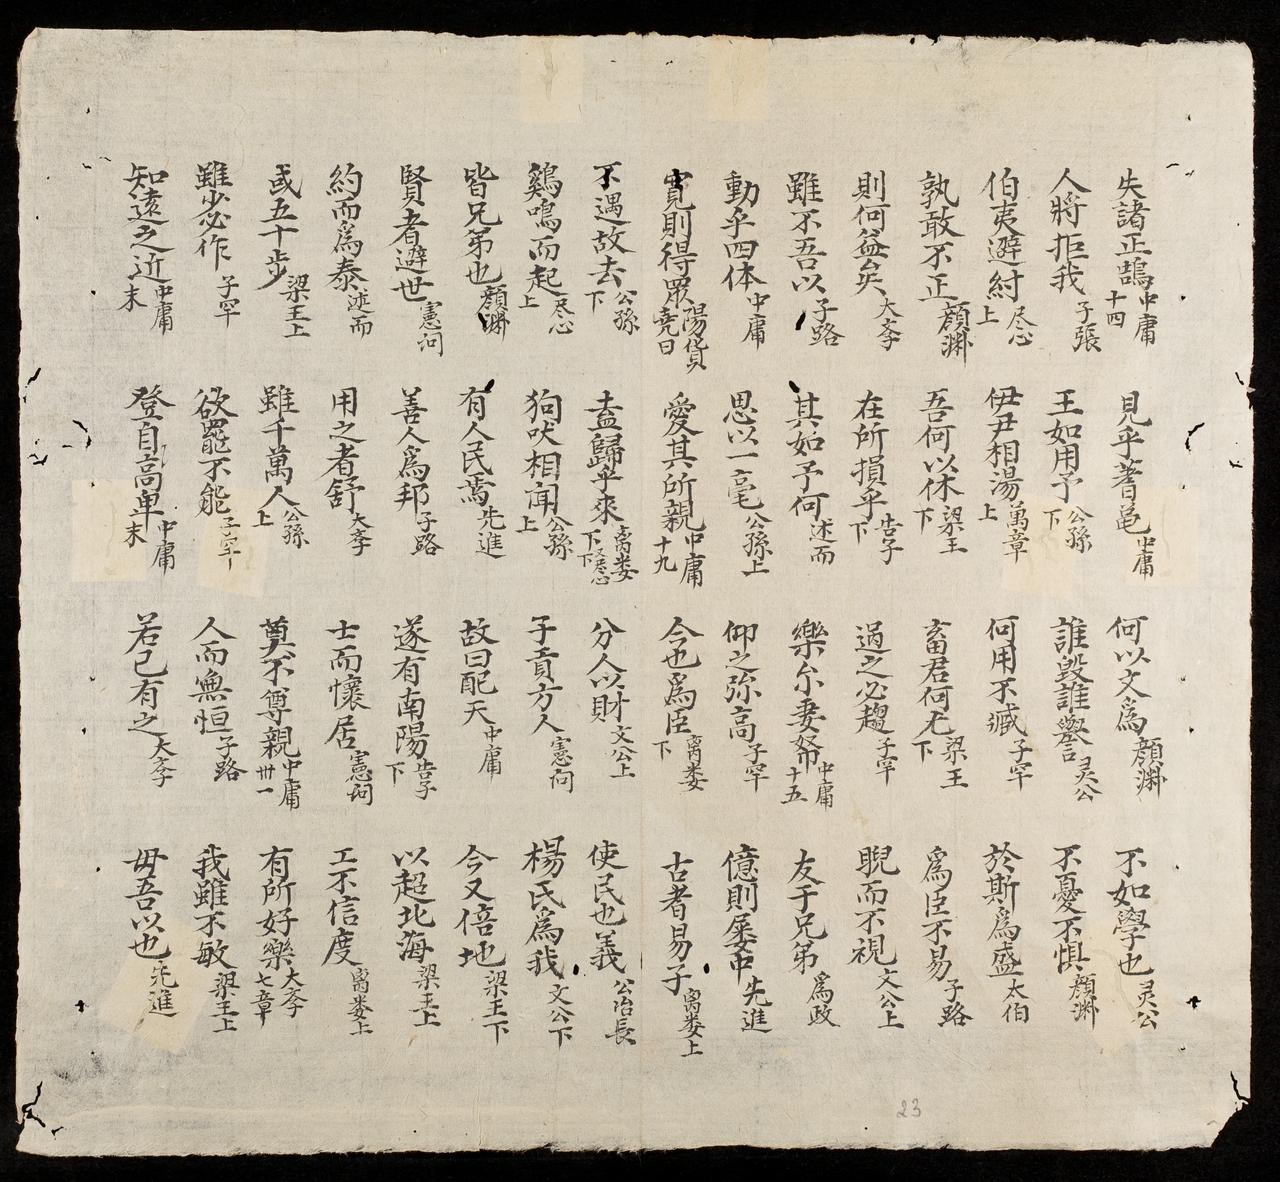 失諸正鵠 中庸十四 見乎蓍龜 中庸 何以文爲 顔淵 不如學也 灵公
人將拒我 子張 王如用予 公孫下 誰毀誰譽 灵公 不憂不惧 顔淵
伯夷避紂 尽心上 伊尹相湯 萬章上 何用不臧 子罕 於斯爲盛 太伯
孰敢不正 顔淵 吾何以休 梁王下 畜君何尤 梁王下 爲臣不易 子路
則何益矣 大斈 在所損乎 告子下 過之必趨 子罕 睨而不視 文公上
雖不吾以 子路 其如予何 述而 樂尔妻帑 中庸十五 友于兄弟 爲政
動乎四体 中庸 思以一毫 公孫上 仰之弥高 子罕 億則屡中 先進
寛則得衆 陽貨 堯曰 愛其所親 中庸十九 今也爲臣 离娄下 古者易子 离娄上
不遇故去 公孫下 盍歸乎來 离娄下 尽心下 分人以財 文公上 使民也義 公冶長
鷄鳴而起 尽心上 狗吠相聞 公孫上 子貢方人 憲问 楊氏爲我 文公下
皆兄弟也 顔淵 有人民焉 先進 故曰配天 中庸 今又倍地 梁王下
賢者避世 憲问 善人爲邦 子路 遂有南陽 告子下 以超北海 梁王上
約而爲泰 述而 用之者舒 大斈 士而懷居 憲问 工不信度 离娄上
或五十步 梁王上 雖千萬人 公孫上 莫不尊親 中庸卅一 有所好樂 大斈七章
雖少必作 子罕 欲罷不能 子罕 人而無恒 子路 我雖不敏 梁王上
知遠之近 中庸末 登自高卑 中庸末 若己有之 大斈 毋吾以也 先進
23